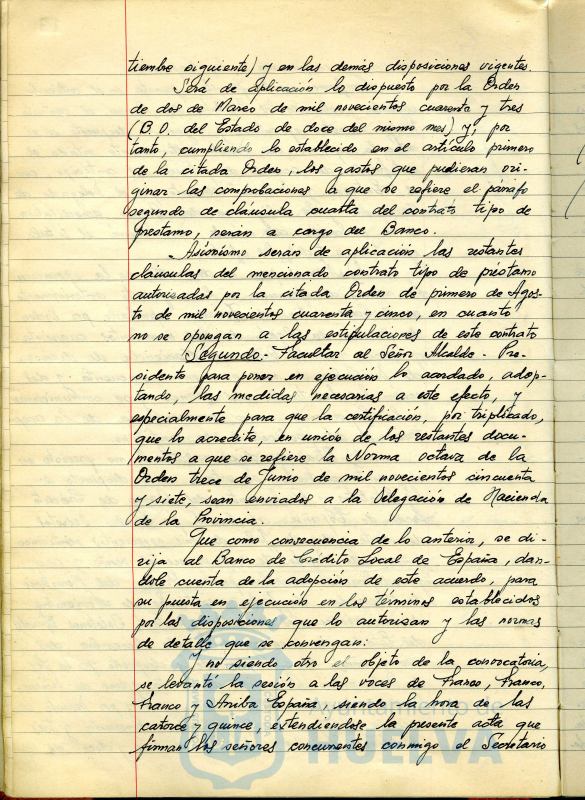 tiembre siguiente) y en las demás disposiciones vigentes.
Será de aplicación lo dispuesto por la Orden
de dos de Marzo de mil novecientos cuarenta y tres
(B.O. del Estado de doce del mismo mes) y, por
tanto, cumpliendo lo establecido en el artículo primero
de la citada Orden, los gastos que pudieran ori-
ginar las comprobaciones a que se refiere el párrafo
segundo de cláusula cuarta del contrato tipo de
préstamo, serán a cargo del Banco.
Asimismo serán de aplicación las restantes
cláusulas del mencionado contrato tipo de préstamo
autorizadas por la citada Orden de primero de Agos-
to de mil novecientos cuarenta y cinco, en cuanto
no se opongan a las estipulaciones de este contrato
Segundo.- Facultar al Señor Alcalde - Pre-
sidente para poner en ejecución lo acordado, adop-
tando, las medidas necesarias a este efecto, y
especialmente para que la certificación, por triplicado,
que lo acredite, en unión de los restantes docu-
mentos a que se refiere la Norma octava de la
Orden trece de Junio de mil novecientos cincuenta
y siete, sean enviados a la Delegación de Hacienda
de la Provincia.
Que como consecuencia de lo anterior, se di-
rija al Banco de Crédito Local de España, dan-
dole cuenta de la adopción de este acuerdo, para
su puesta en ejecución en los términos establecidos
por las disposiciones que lo autorizan y las normas
de detalle que se convengan:
Y no siendo otro el objeto de la convocatoria,
se levantó la sesión a las voces de Franco, Franco,
Franco y Arriba España, siendo la hora de las
catorce y quince, extendiendose la presente acta que
firman los señores concurrentes conmigo el Secretario
de
HUELVA